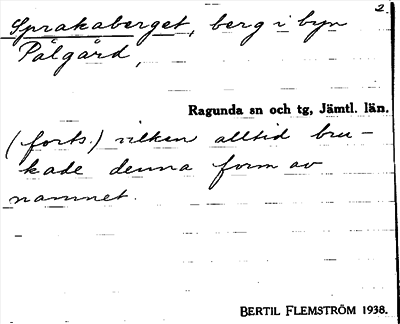 2.
Sprakaberget, berg i byn
Pålgård,
Ragunda sn och tg, Jämtl. län.
(forts.) vilken alltid bru-
kade denna form av
namnet.
BERTIL FLEMSTRÖM 1938.